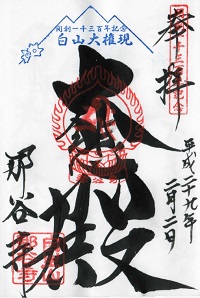 奉拝
開創一千三百年記念
白山大権現
大悲殿
平成二十九年
二月二日
那谷寺